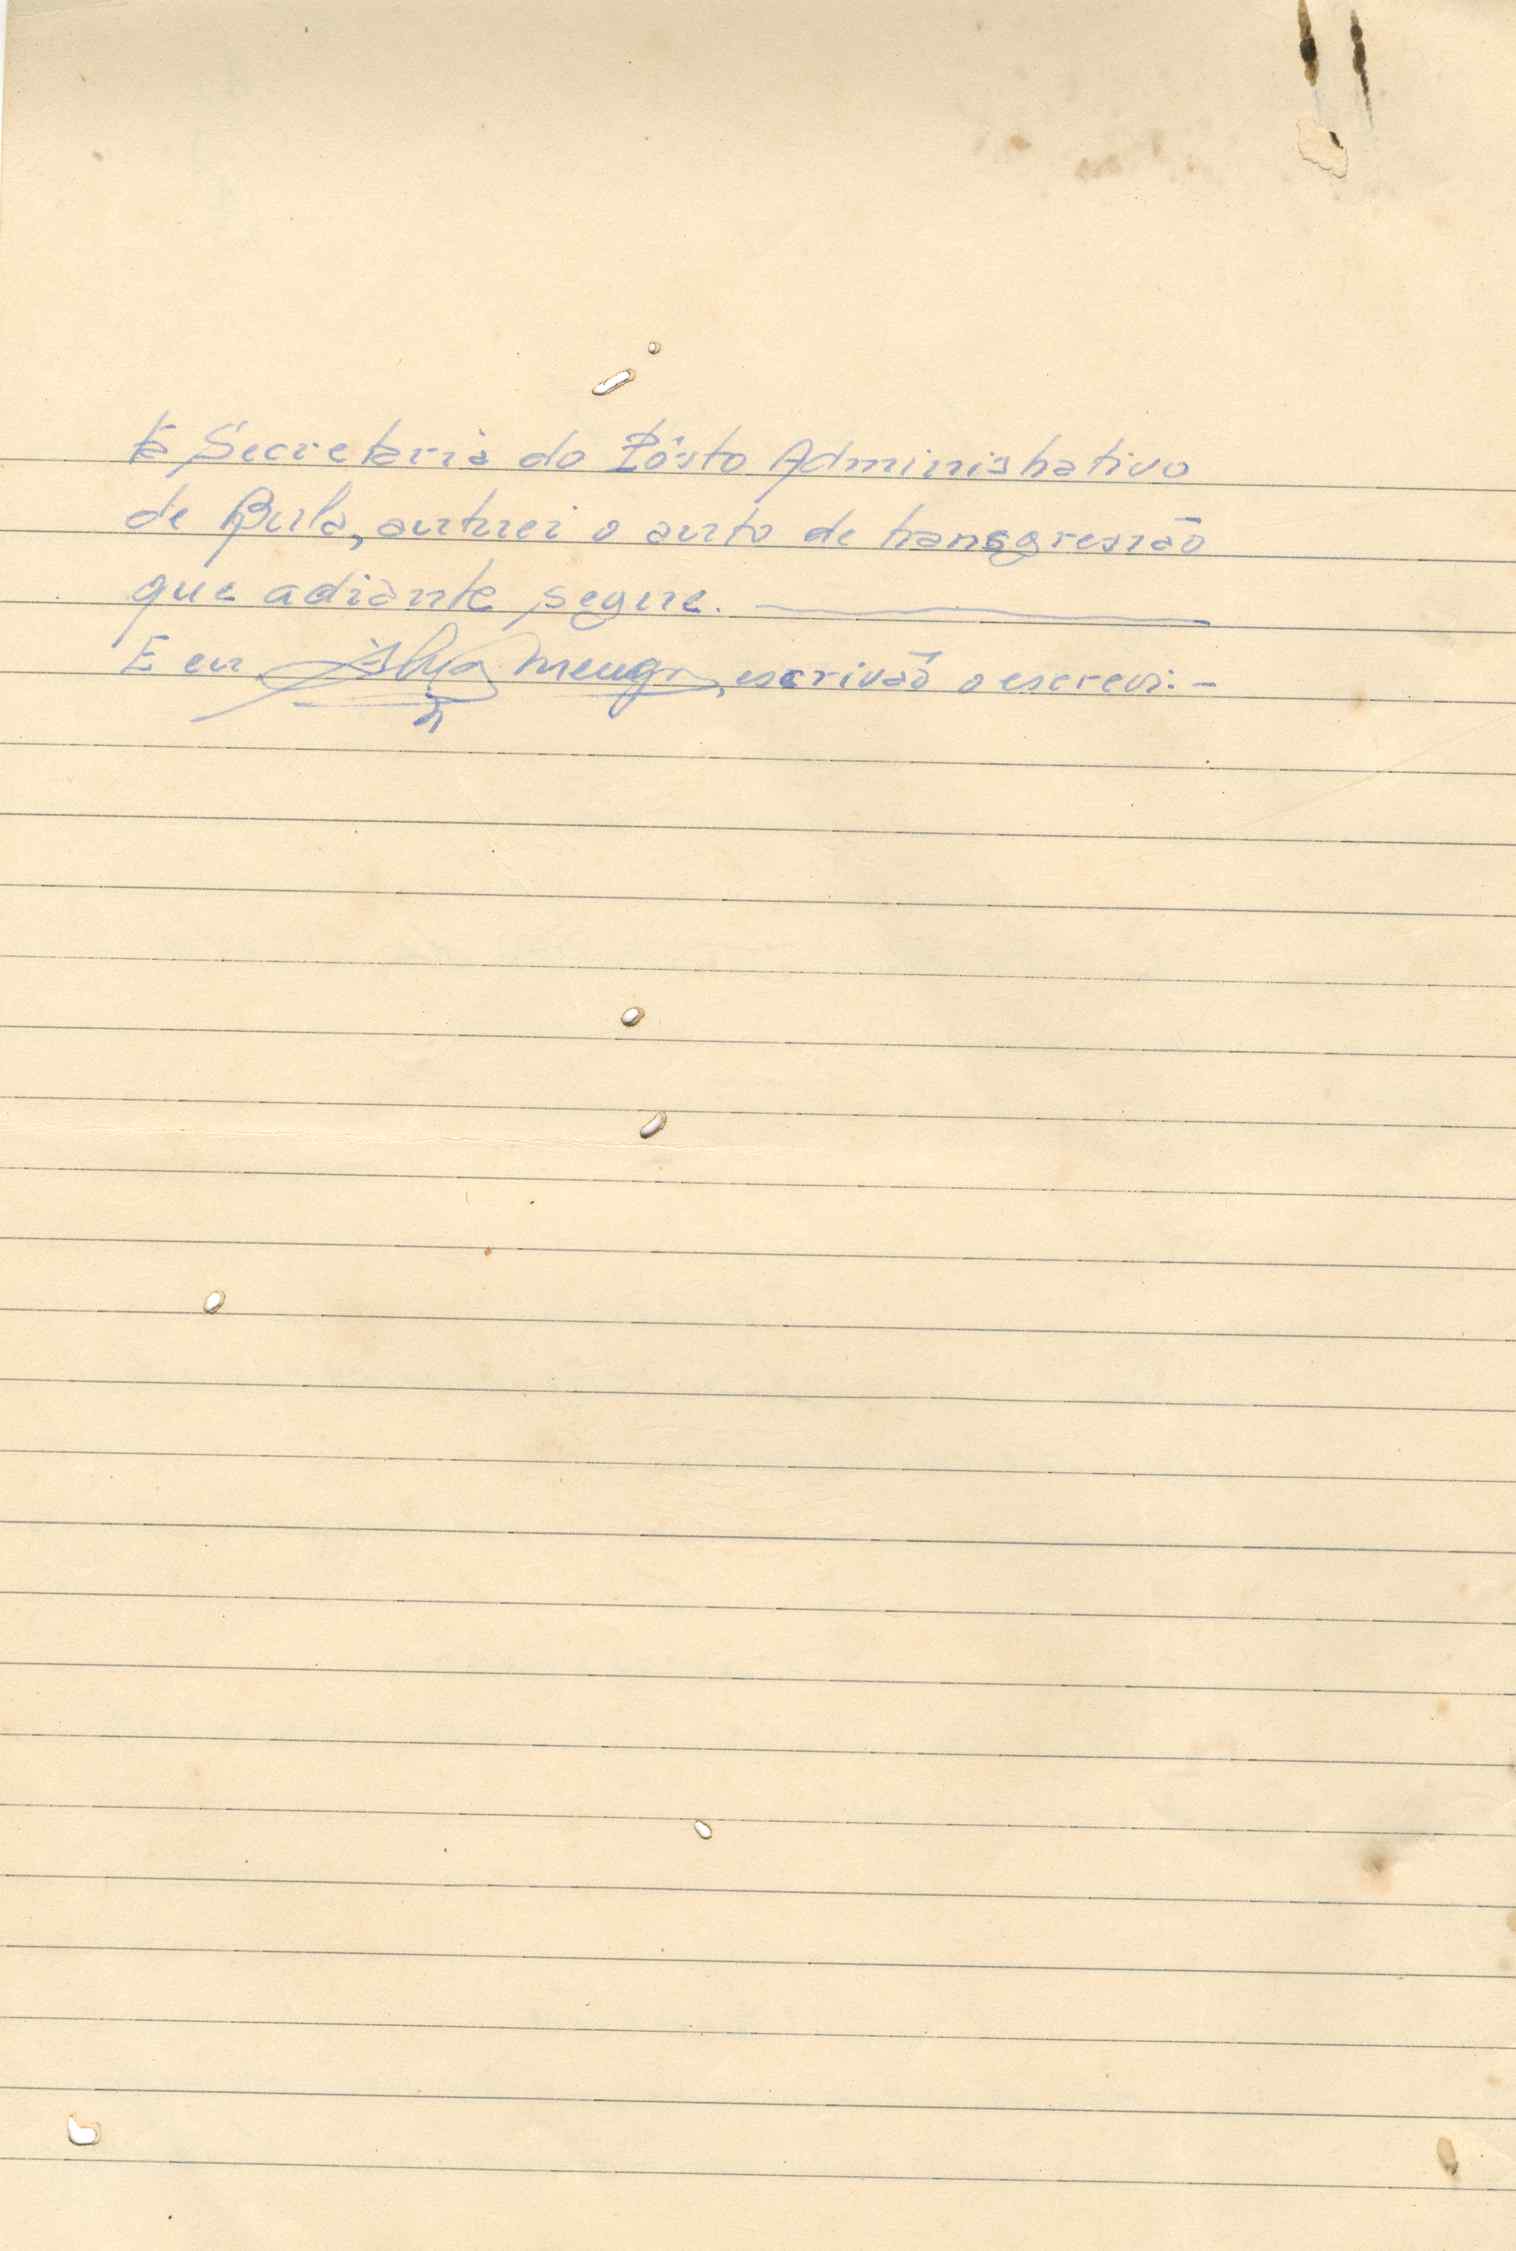 ta Secretaria do Pôsto Administrativo
de Bula, autuei o auto de transgressão
que adiante segue.
E eu, escrivão o escrevi: -